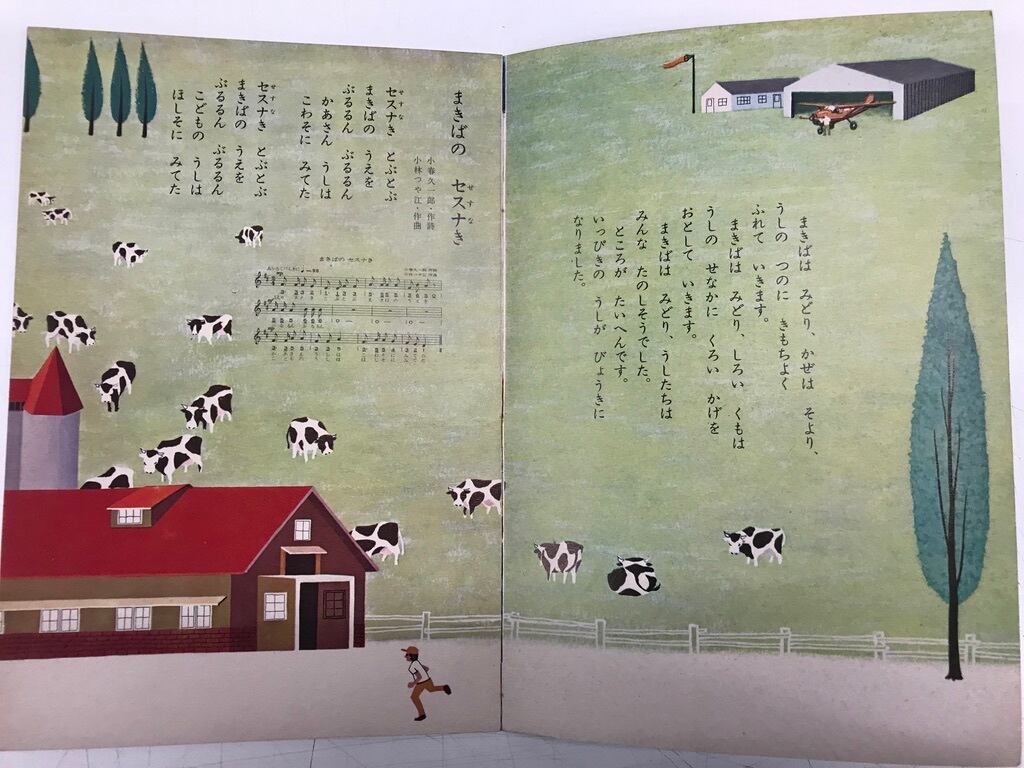 まきばの セスナき
せすな
小春久一郎・作詩
小林つや江・作曲
セスナき とぶとぶ
せすな
まきばの うえを
ぶるるん ぶるるん
かあさん うしは
こわそに みてた
セスナき とぶとぶ
せすな
まきばの うえを
ぶるるん ぶるるん
こどもの うしは
ほしそに みてた
まきばの セスナき
まきばは みどり、かぜは そより、
うしの つのに きもちよく
ふれて いきます。
まきばは みどり、しろい くもは
うしの せなかに くろい かげを
おとして いきます。
まきばは みどり、うしたちは
みんな たのしそうでした。
ところが たいへんです。
いっぴきの うしが びょうきに
なりました。